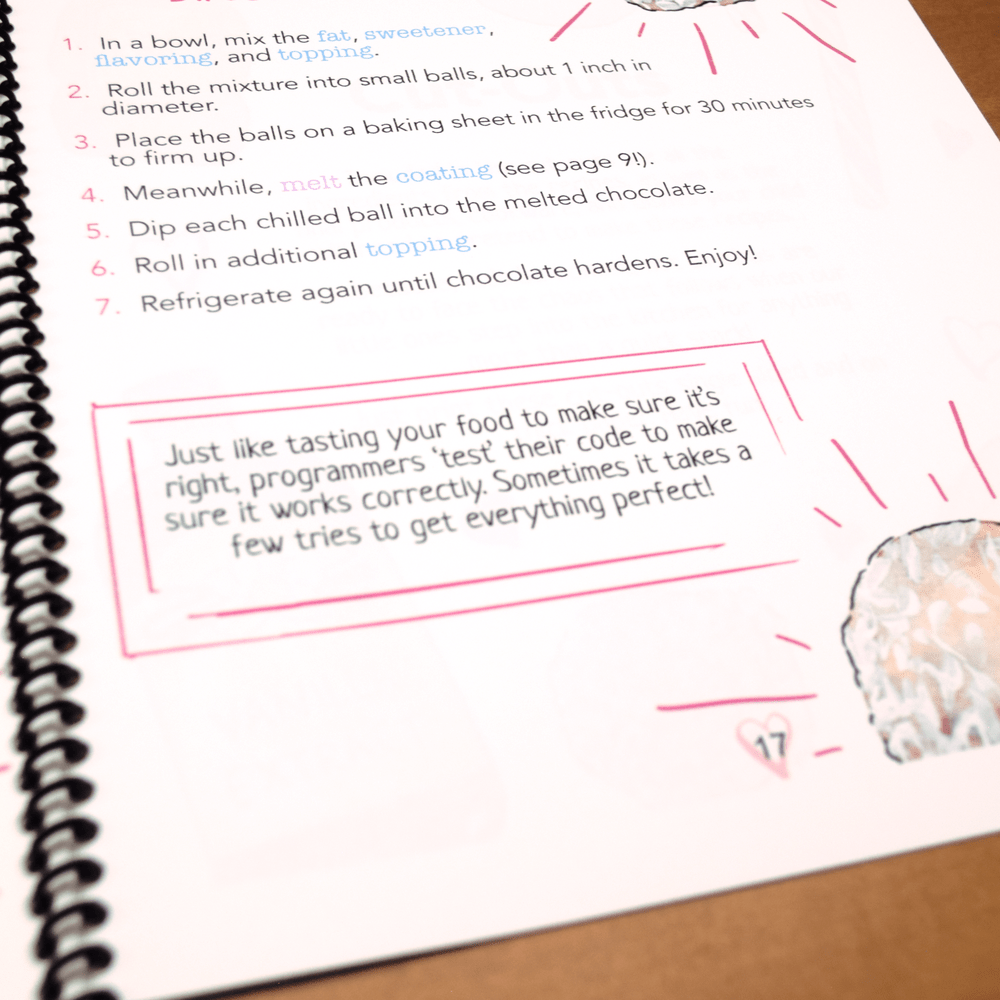 1. In a bowl, mix the fat, sweetener,
flavoring, and topping.
2. Roll the mixture into small balls, about 1 inch in
diameter.
3. Place the balls on a baking sheet in the fridge for 30 minutes
to firm up.
4. Meanwhile, melt the coating (see page 9!).
5. Dip each chilled ball into the melted chocolate.
6. Roll in additional topping.
7. Refrigerate again until chocolate hardens. Enjoy!
Just like tasting your food to make sure it's
right, programmers 'test' their code to make
sure it works correctly. Sometimes it takes a
few tries to get everything perfect!
17